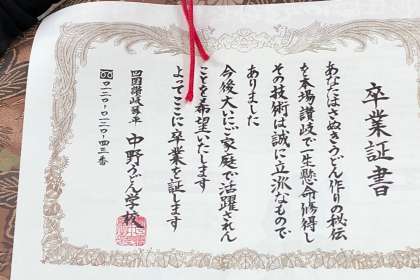 卒業証書
あなたはさぬきうどん作りの秘伝
を本場讃岐で一生懸命修得し
その技術は誠に立派なもので
ありました
今後大いにご家庭で活躍されん
ことを希望いたします
よってここに卒業を証します
四国讃岐琴平
中野うどん学校
〇一二〇・〇一二〇・四三番